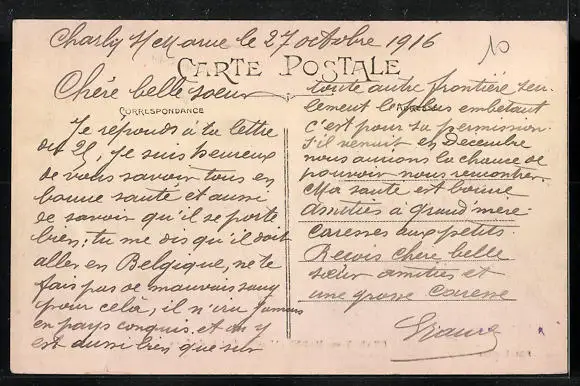 Charly s/Marne le 27 octobre 1916
10
CARTE POSTALE
Chère belle soeur
CORRESPONDANCE
Je réponds à ta lettre
du 25, je suis heureux
de vous savoir tous en
bonne santé et aussi
de savoir qu'il se porte
bien; tu me dis qu'il doit
aller en Belgique, ne te
fais pas de mauvais sang
pour celà, il n'ira jamais
en pays conquis, et on y
est aussi bien que sur
toute autre frontière seu-
lement le plus embêtant
c'est pour sa permission.
S'il venait en Decembre
nous aurions la chance de
pouvoir nous rencontrer.
Ma santé est bonne
amitiés à grand'mère
caresses aux petits
Reçois chère belle
soeur amitiés et
une grosse caresse